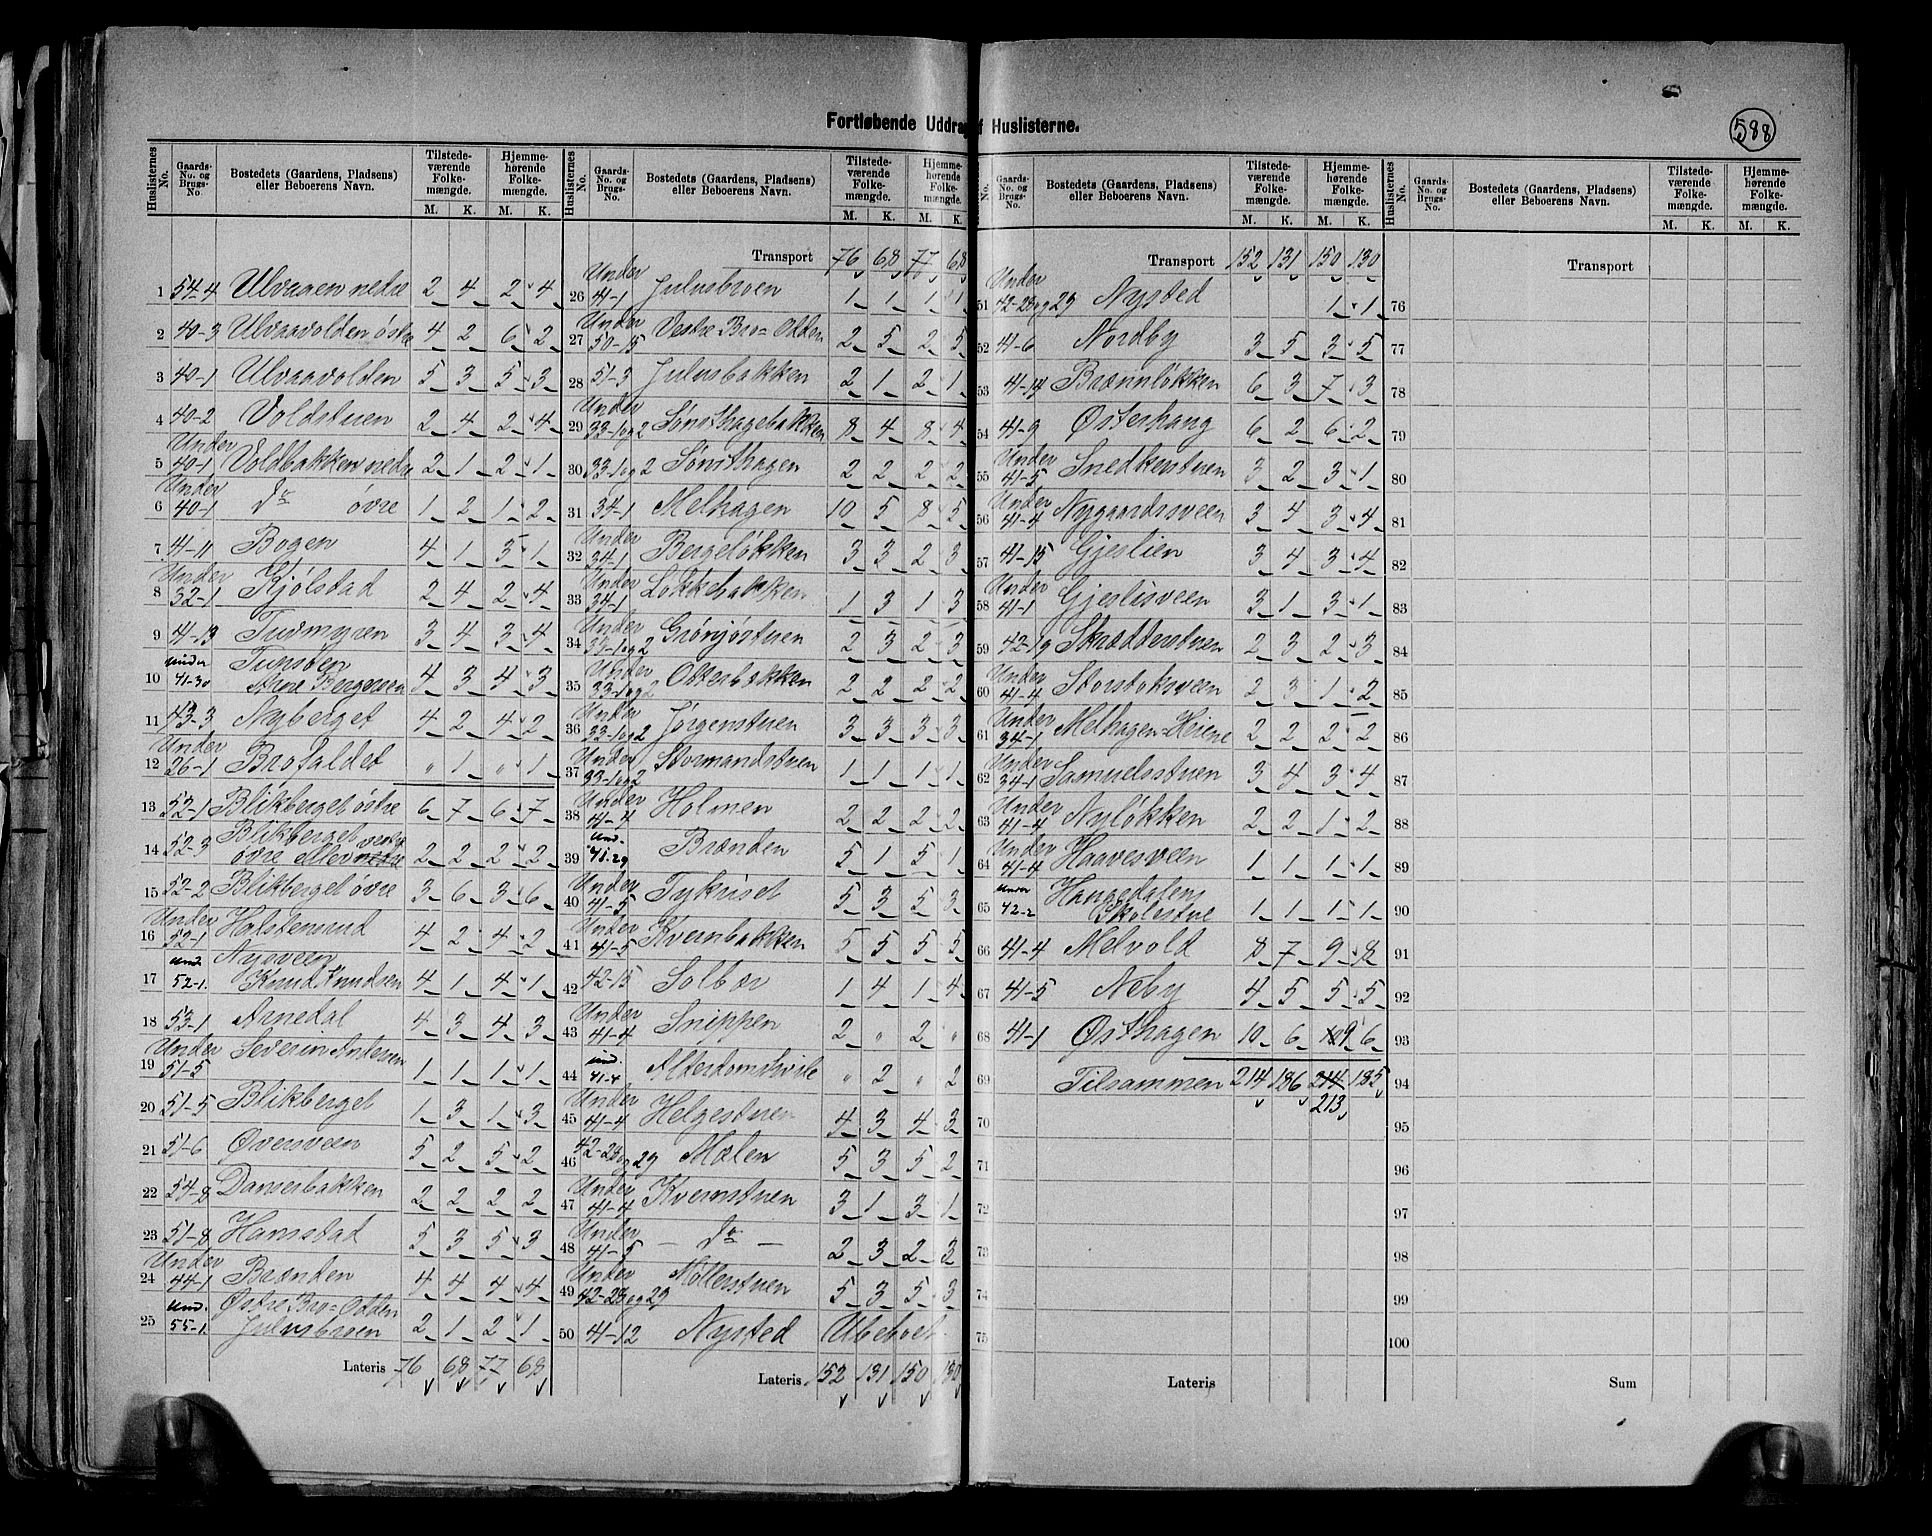 588
Fortløbende Uddrag af Huslisterne.
Huslisternes No. Gaards-No. og Brugs-No. Bostedets (Gaardens, Pladsens) eller Beboerens Navn. Tilstedeværende Folkemængde. M. K. Hjemmehørende Folkemængde. M. K.
1 54-4 Ulvaaen nedre 2 4 2 4
2 40-3 Ulvaavolden østre 4 2 6 2
3 40-1 Ulvaavolden 5 3 5 3
4 40-2 Voldstuen 2 4 2 4
5 Under 40-1 Voldbakken nedre 2 1 2 1
6 Under 40-1 do øvre 1 2 1 2
7 41-11 Bogen 4 1 5 1
8 Under 32-1 Kjølstad 2 4 2 4
9 41-13 Tudmyren 3 4 3 4
10 under 41-30 Arne Bergersen 4 3 4 3
11 43-3 Nyberget 4 2 4 2
12 Under 26-1 Brofaldet " 1 " 1
13 52-1 Blikberget østre 6 7 6 7
14 52-3 Blikberget øvre 2 2 2 2
15 52-2 Blikberget øvre 3 6 3 6
16 Under 52-1 Holstensrud 4 2 4 2
17 und. 52-1. Nysveen Knud Knudsen 4 1 4 1
18 53-1 Arnedal 4 3 4 3
19 Under 51-5 Severin Andersen 1 1 1 1
20 51-5 Blikberget 1 3 1 3
21 51-6 Øversveen 5 2 5 2
22 54-8 Danserbakken 2 2 2 2
23 51-8 Hamstad 5 3 5 3
24 Under 44-1 Brænden 4 4 4 4
25 und. 55-1. Østre Bro=Odden Julusbroen 2 1 2 1
Lateris 76 68 77 68
Transport 76 68 77 68
26 Under 41-1 Julusbroen 1 1 1 1
27 Under 50-15 Vestre Bro=Odden 2 5 2 5
28 51-3 Julusbakken 2 1 2 1
29 Under 33-1og2 Sønsthagebakken 8 4 8 4
30 33-1og2 Sønsthagen 2 2 2 2
31 34-1 Melhagen 10 5 8 5
32 Under 34-1 Bergeløkken 3 3 2 3
33 Under 34-1 Løkkebakken 1 3 1 3
34 Under 33-1og2 Grønjørstuen 2 3 2 3
35 Under 33-1og2 Otterbakken 2 2 2 2
36 Under 33-1og2 Jørgenstuen 3 3 3 3
37 Under 33-1og2 Stormandstuen 1 1 1 1
38 Under 41-4 Holmen 2 2 2 2
39 und. 41-29 Brænden 5 1 5 1
40 Under 41-5 Tykruset 5 3 5 3
41 Under 41-5 Kvernbakken 5 5 5 5
42 42-15 Solbær 1 4 1 4
43 Under 41-4 Snippen 2 " 2 "
44 und. 41-4 Alderdomshvile " 2 " 2
45 Under 41-4 Helgestuen 4 3 4 3
46 42-23og29 Mælen 5 3 5 2
47 Under 41-4 Kvernstuen 3 1 3 1
48 Under 41-5 — do — 2 3 2 3
49 Under 42-23og29 Møllerstuen 5 3 5 3
50 41-12 Nysted Ubeboet.
Lateris 152 131 150 130
Transport 152 131 150 130
51 Under 42-23og29 Nysted 1 1
52 41-6 Nordby 3 5 3 5
53 41-14 Brænnløkken 6 3 7 3
54 41-9 Østerhaug 6 2 6 2
55 Under 41-5 Snedkerstuen 3 2 3 1
56 Under 41-4 Nygaardsveen 3 4 3 4
57 41-15 Gjeslien 3 4 3 4
58 Under 41-1 Gjeslisveen 3 1 3 1
59 42-19 Skrædderstuen 2 3 2 3
60 Under 41-4 Storstoksveen 2 3 1 2
61 Under 34-1 Melhagen=Heiene 2 2 2 2
62 Under 34-1 Samuelsstuen 3 4 3 4
63 Under 41-4 Nyløkken 2 2 1 2
64 Under 41-4 Haavesveen 1 1 1 1
65 under 42-2 Haugedalens Skolestue 1 1 1 1
66 41-4 Melvold 8 7 9 8
67 41-5 Neby 4 5 5 5
68 41-1 Østhagen 10 6 10 9 6
69 Tilsammen 214 186 214 185
70 213
71
72
73
74
75
Lateris
Transport
76
77
78
79
80
81
82
83
84
85
86
87
88
89
90
91
92
93
94
95
96
97
98
99
100
Sum